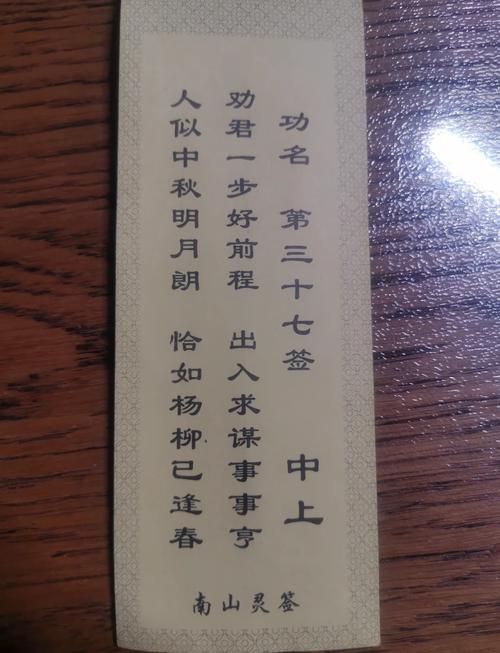 功名 第三十七签 中上
劝君一步好前程 出入求谋事事亨
人似中秋明月朗 恰如杨柳已逢春
南山灵签